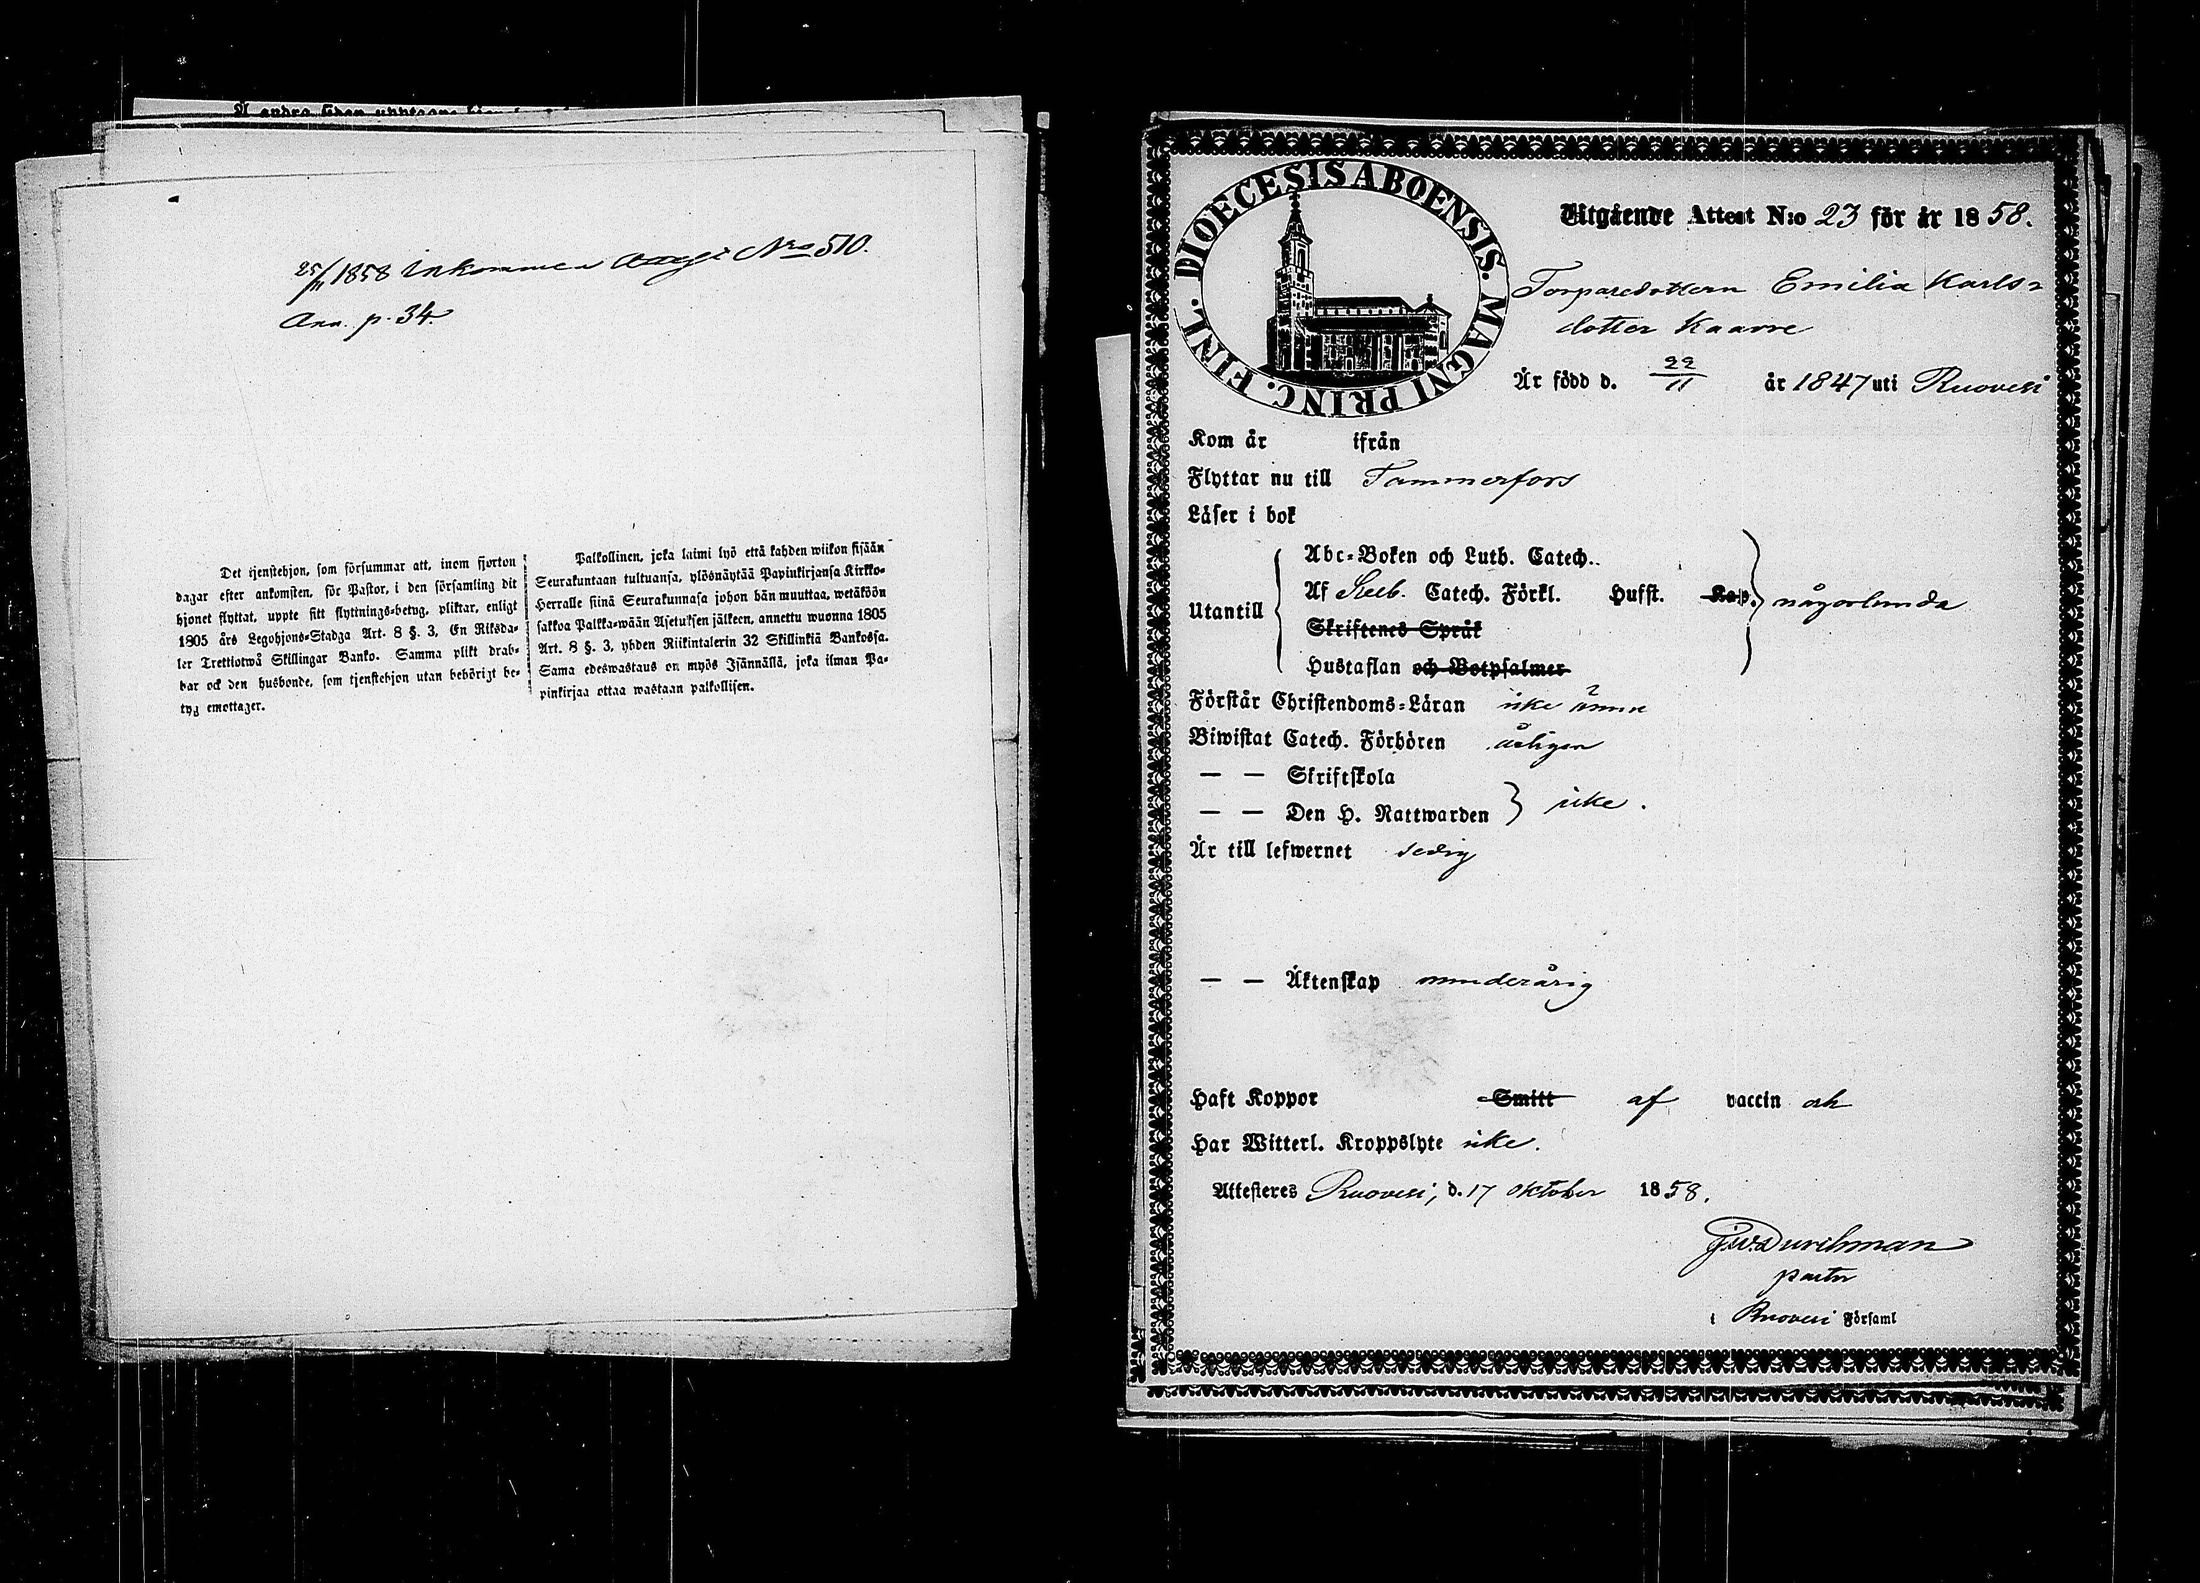 25/11 1858 Inkommen Nro 510.
Ann. p. 34.
Det tjenstehjon, som försummar att, inom fjorton
dagar efter ankomsten, för Pastor, i den församling dit
hjonet flyttat, uppte sitt flyttnings-betyg, pliktar, enligt
1805 års Legohjons-Stadga Art. 8 §. 3, En Riksda-
ler Trettiotwå Skillingar Banko. Samma plikt drab-
bar ock den husbonde, som tjenstehjon utan behörigt be-
tyg emottager.
Palkollinen, joka laimi lyö että kahden wiikon sisään
Seurakuntaan tultuansa, ylösnäytää Papinkirjansa Kirkko-
Herralle siinä Seurakunnasa johon hän muuttaa, wetäköön
sakkoa Palkka-wään Asetuksen jälkeen, annettu wuonna 1805
Art. 8 §. 3, yhden Riikintalerin 32 Skillinkiä Bankossa.
Sama edeswastaus on myös Isännällä, joka ilman Pa-
pinkirjaa ottaa wastaan palkollisen.
DIOECESIS ABOENSIS. MAGNI PRINC. FINL.
Utgående Attest N:o 23 för år 1858.
Torparedottern Emilia Karls-
dotter Kaarre
Är född d. 22/11 år 1847 uti Ruovesi
Kom år ifrån
Flyttar nu till Tammerfors
Läser i bok
Abc-Boken och Luth. Catech.
Utantill
Af Sveb. Catech. Förkl. Husst. Kap. någorlunda
Skriftenes Språk
Hustaflan och Botpsalmer
Förstår Christendoms-Läran icke ännu
Biwistat Catech. Förhören årligen
— — Skriftskola
— — Den H. Nattwarden icke.
Är till lefwernet sedig
— — Äktenskap minderårig
Haft Koppor Smitt af vaccin
Har Witterl. Kroppslyte icke.
Attesteres Ruovesi, d. 17 oktober 1858.
J.W. Durchman
pastor
i Ruovesi Församl